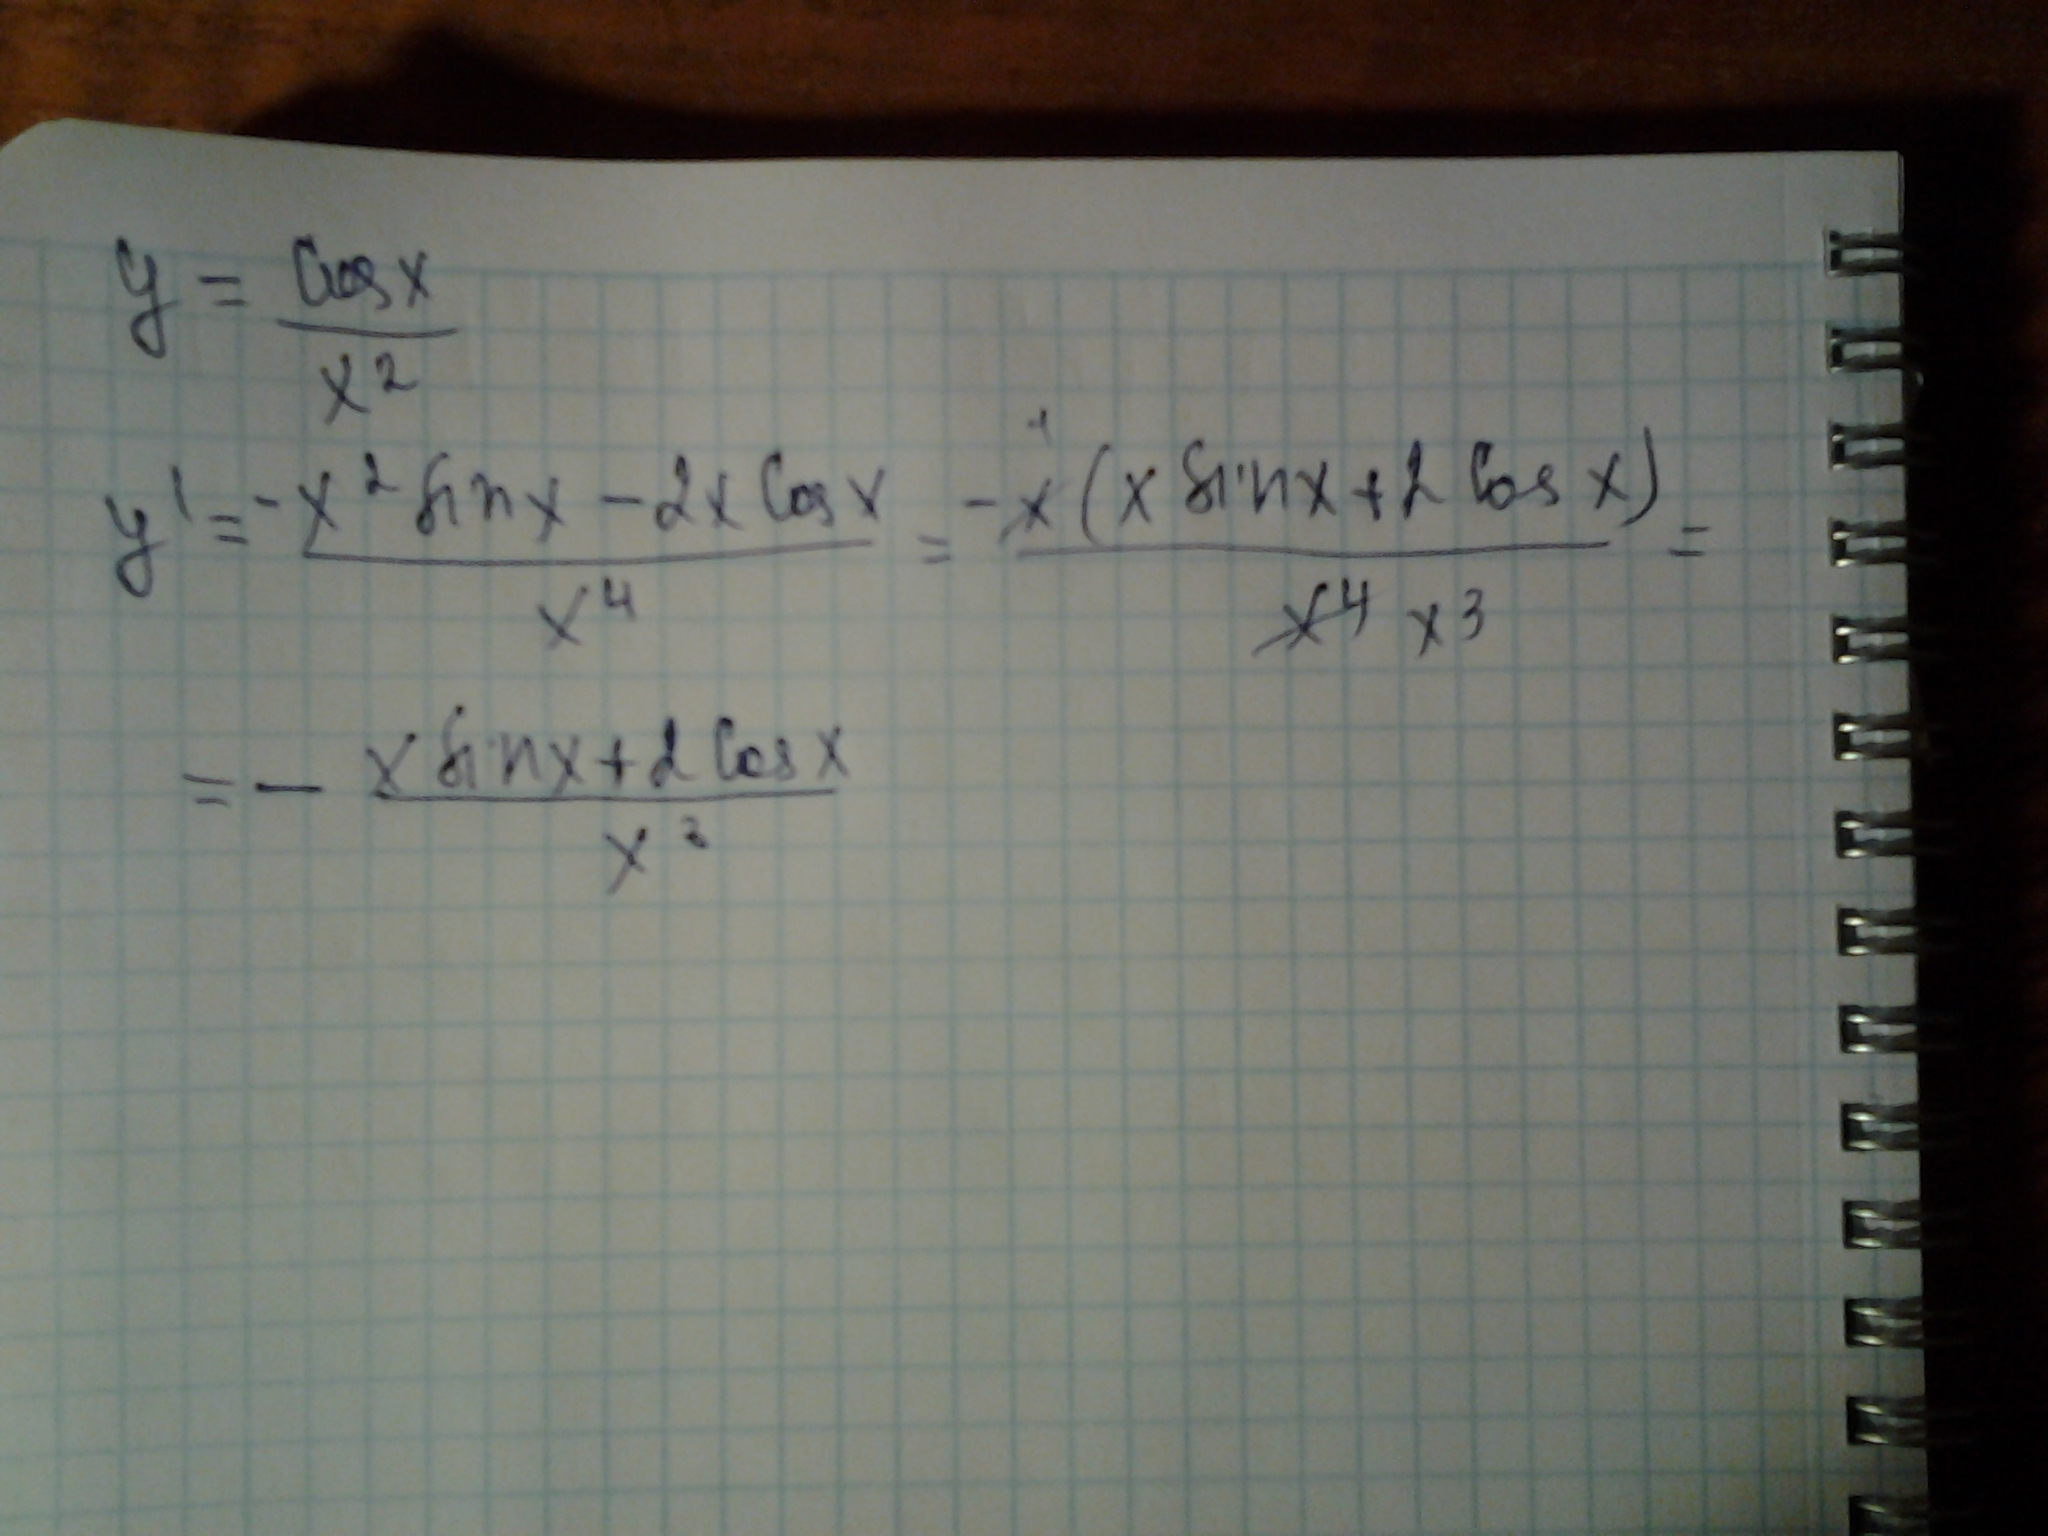 y = cos x / x²
y' = -x² sin x - 2x cos x / x⁴ = -x (x sin x + 2 cos x) / x⁴ x³ =
= - x sin x + 2 cos x / x³